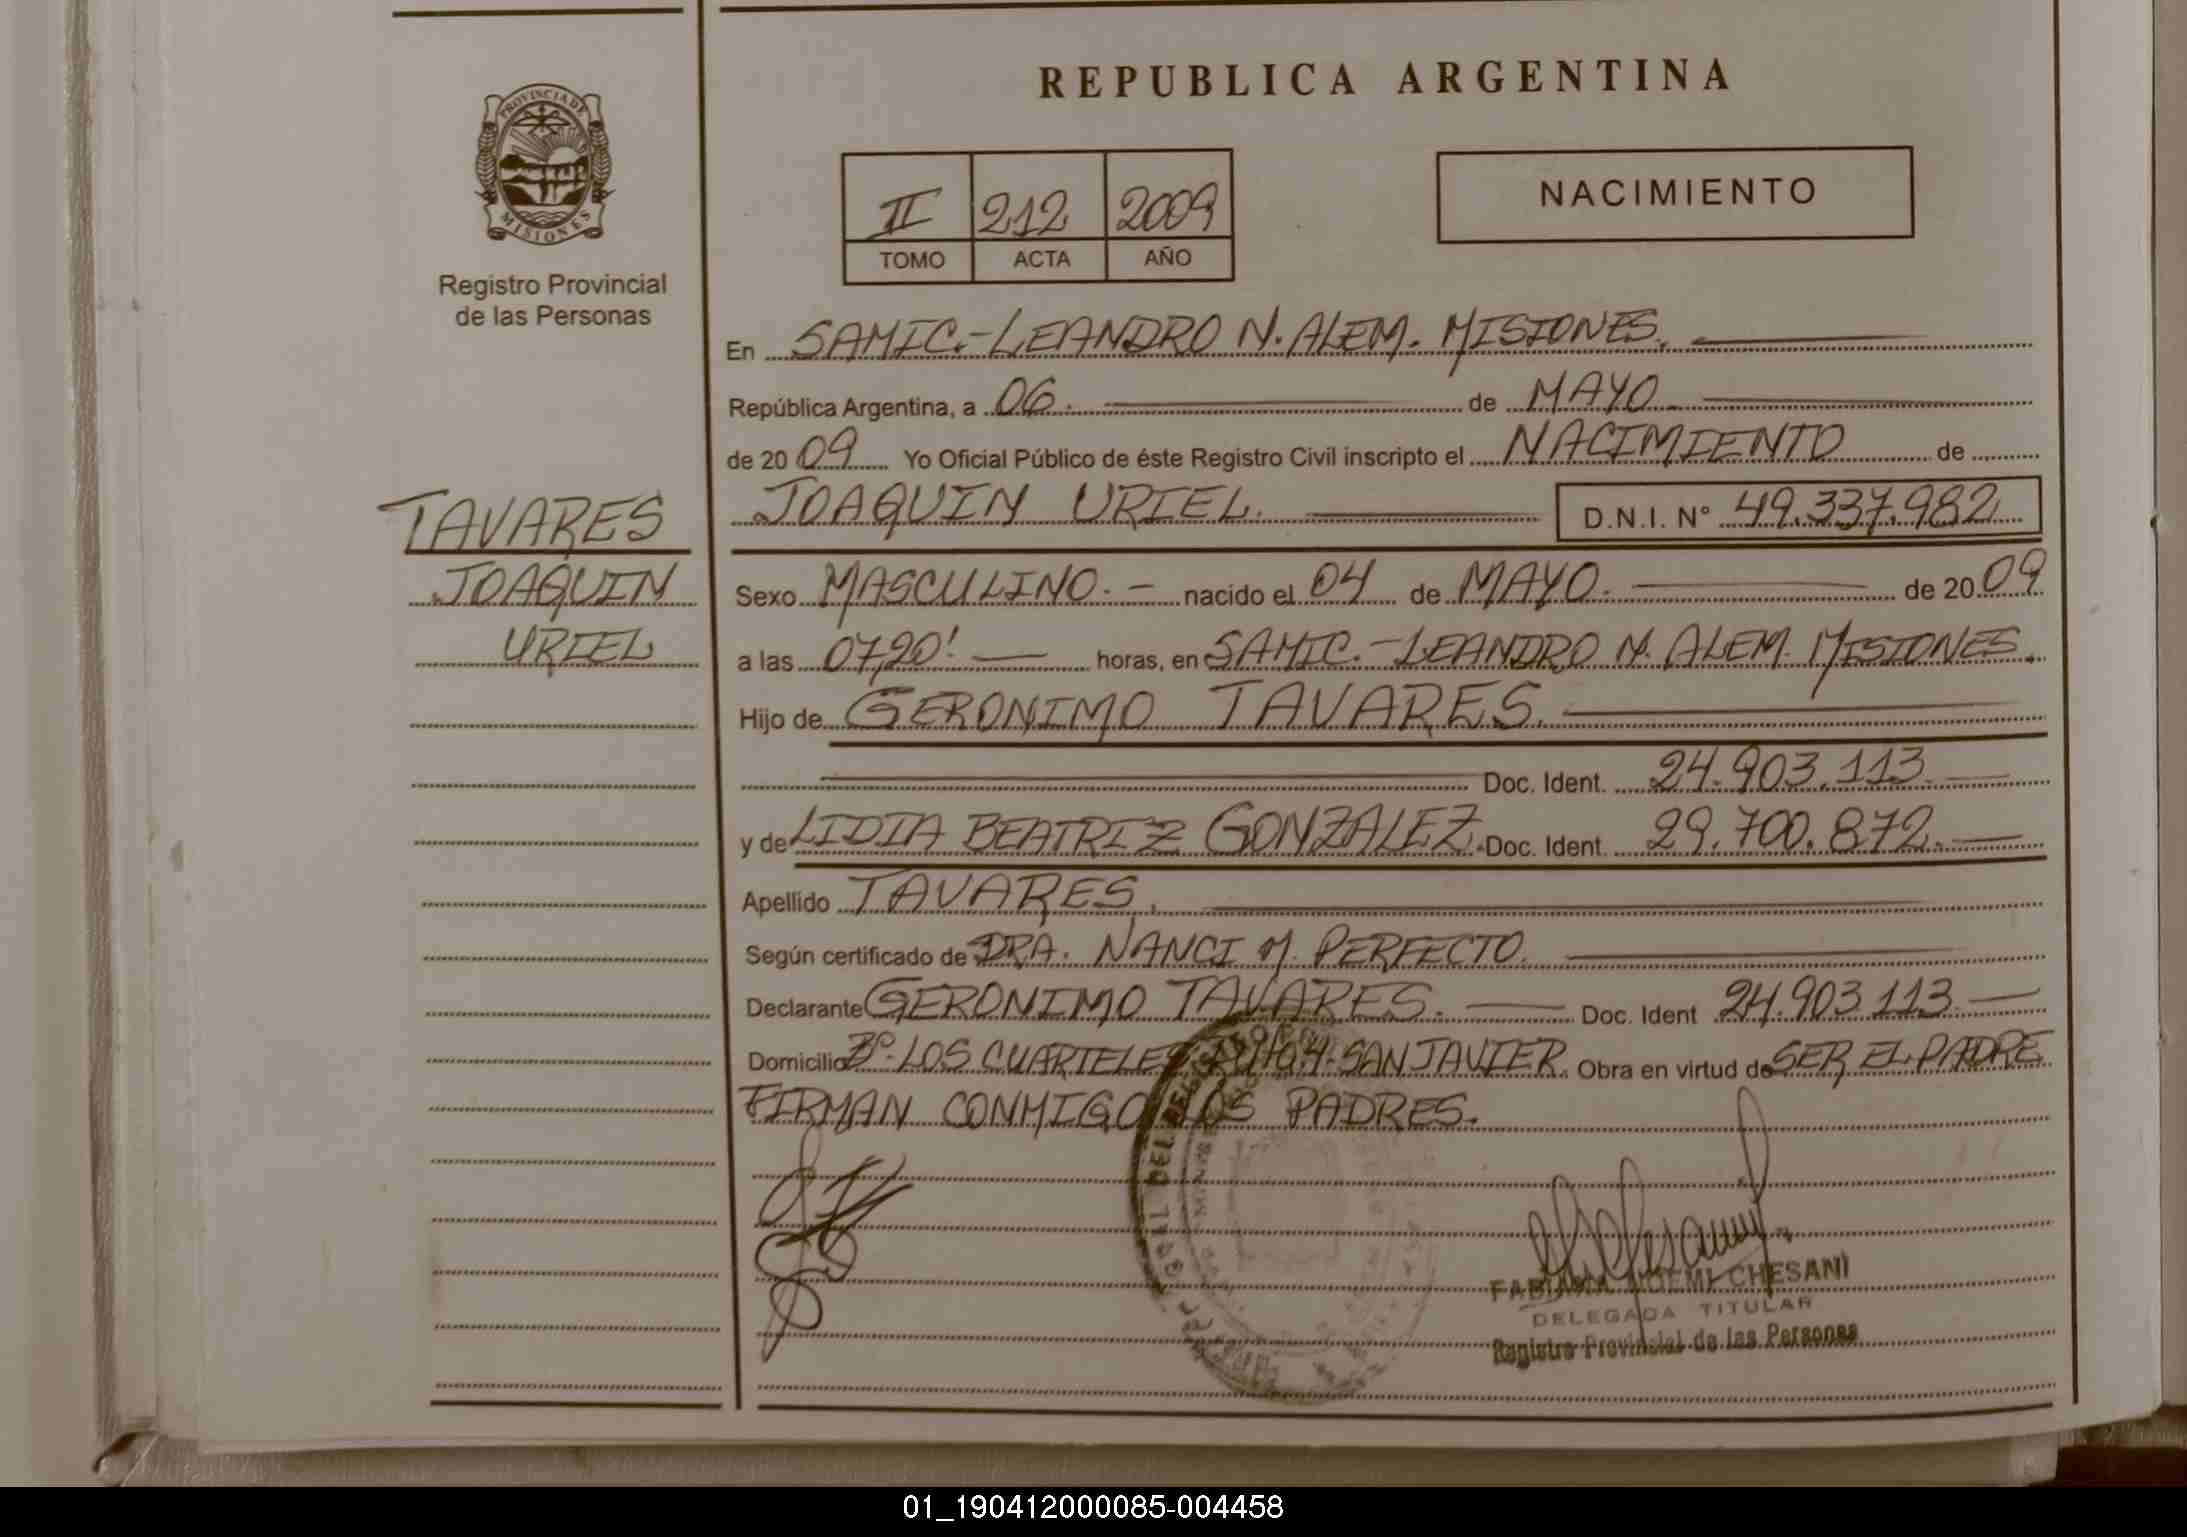 REPUBLICA ARGENTINA
PROVINCIA DE
MISIONES
Registro Provincial
de las Personas
II 212 2009
TOMO ACTA AÑO
NACIMIENTO
En SAMIC.-LEANDRO N. ALEM. MISIONES.
República Argentina, a 06. de MAYO
de 2009 Yo Oficial Público de éste Registro Civil inscripto el NACIMIENTO de
JOAQUIN URIEL. D.N.I. N° 49.337.982
TAVARES
JOAQUIN
URIEL
Sexo MASCULINO. - nacido el 04 de MAYO. de 2009
a las 07,20' horas, en SAMIC.-LEANDRO N. ALEM. MISIONES.
Hijo de GERONIMO TAVARES.
Doc. Ident. 24.903.113
y de LIDIA BEATRIZ GONZALEZ. Doc. Ident. 29.700.872.
Apellido TAVARES.
Según certificado de DRA. NANCI M. PERFECTO.
Declarante GERONIMO TAVARES. Doc. Ident 24.903.113
Domicilio Bº. LOS CUARTELES RUTA 4. SAN JAVIER. Obra en virtud de SER EL PADRE
FIRMAN CONMIGO LOS PADRES.
FABIANA NOEMI CHESANI
DELEGADA TITULAR
Registro Provincial de las Personas
01_190412000085-004458